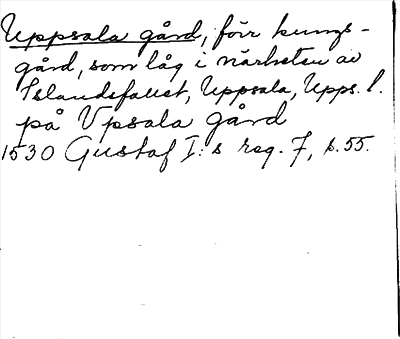 Uppsala gård, förr kungs-
gård, som låg i närheten av
Islandsfallet, Uppsala, Upps. l.
på Vpsala gård
1530 Gustaf I:s reg. 7, s. 55.